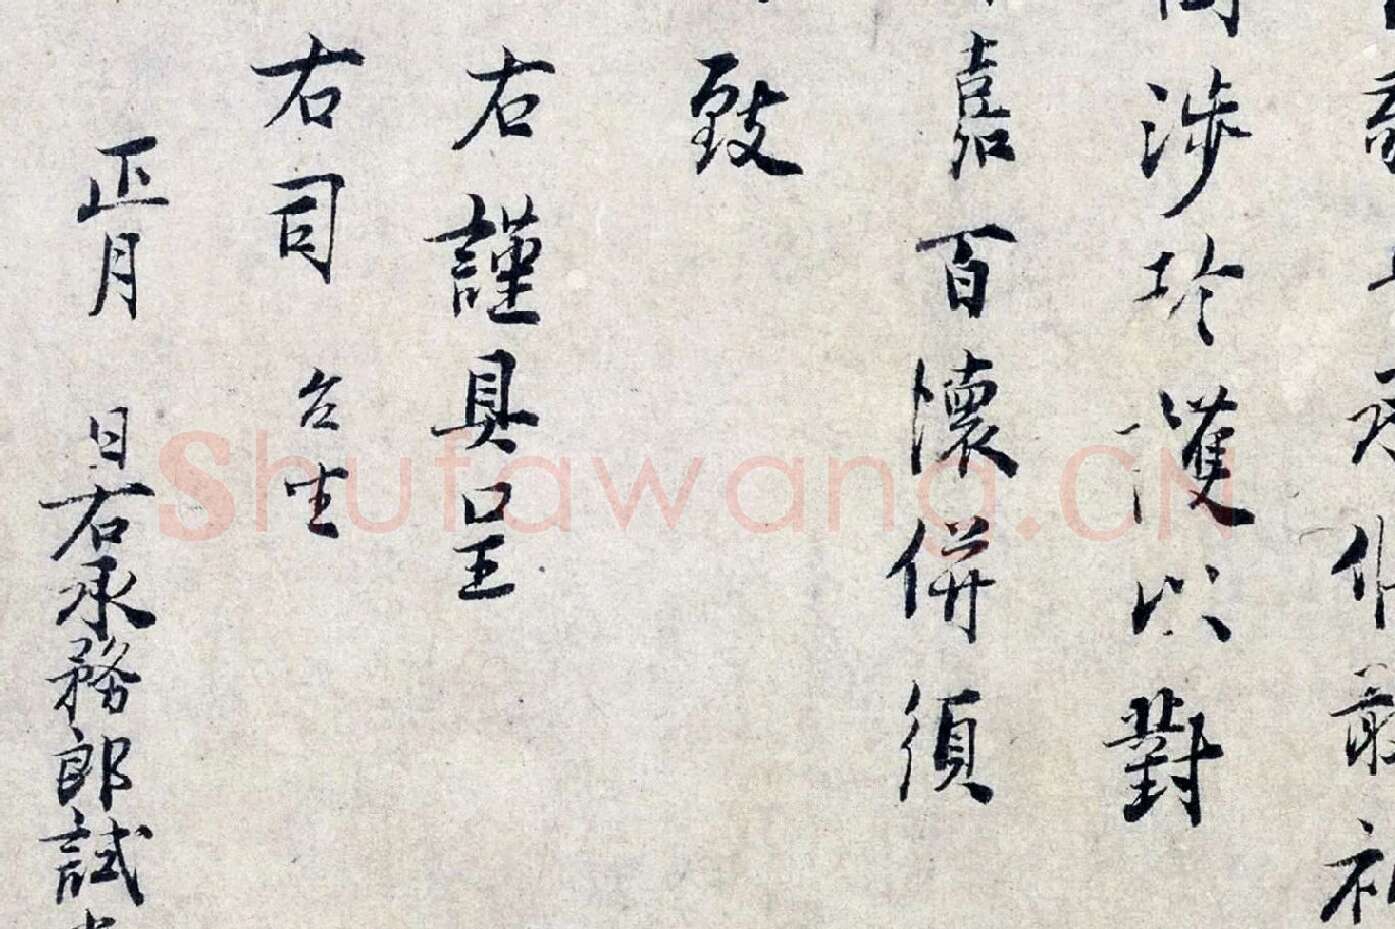 涉於謹以對
嘉百懷併須
致
右謹具呈
右司 台坐
正月 日右承務郎試
Shufawang.CN